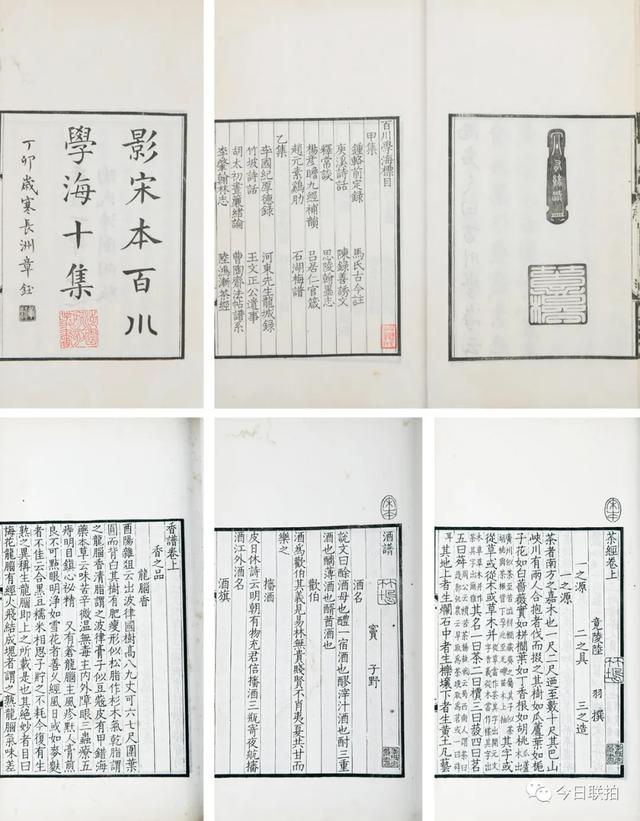 影宋本百川
學海十集
丁卯歲寒長洲章鈺
百川學海標目
甲集
鍾輅前定錄
馬氏古今註
庚溪詩話
陳錄善誘文
釋常談
思陵翰墨志
楊彥瞻九經補韻
呂居仁官箴
趙元素鷄肋
石湖梅譜
乙集
李國紀厚德錄
河東先生龍城錄
竹坡詩話
王文正公遺事
胡太初晝簾緒論
曹陶齋法帖譜系
李肇翰林志
陸鴻漸茶經
香譜卷上
香之品
龍腦香
酉陽雜俎云出波律國樹高八九丈可六七尺圍葉
圓而背白其樹有肥瘦形似松脂作杉木氣乾脂謂
之龍腦香清脂謂之波律膏子似豆蔻皮有甲錯海
藥本草云味苦辛微温無毒主內外障眼三蟲療五
痔明目鎮心秘精又有蒼龍腦主風疹䵟入膏煎
良不可點眼明淨如雪花者善久經風日或如麥麩
者不佳云合黑豆糯米相思子貯之不耗今復有生
熟之異稱生龍腦即上之所載是也其絕妙者目曰
梅花龍腦有經火飛結成塊者謂之熟龍腦氣味差
宋本
酒譜
竇子野
酒名
說文曰酴酒母也醴一宿酒也醪滓汁酒也酎三重
酒也醨薄酒也醑莤酒也
歡伯
酒為歡伯其義見易林無貴賤賢不肖夷夏共甘而
樂之
皮日休詩云明朝有物充君信㰂酒三瓶寄夜航㰂
酒江外酒名
酒旗
宋本
茶經卷上
竟陵陸羽撰
一之源 二之具 三之造
一之源
茶者南方之嘉木也一尺二尺迺至數十尺其巴山
峽川有兩人合抱者伐而掇之其樹如瓜蘆葉如梔
子花如白薔薇實如栟櫚葉如丁香根如胡桃
其字或
從草或從木或草木并
其名一曰茶二曰檟三曰蔎四曰茗
五曰荈
其地上者生爛石中者生櫟壤下者生黃土凡藝
今日联拍